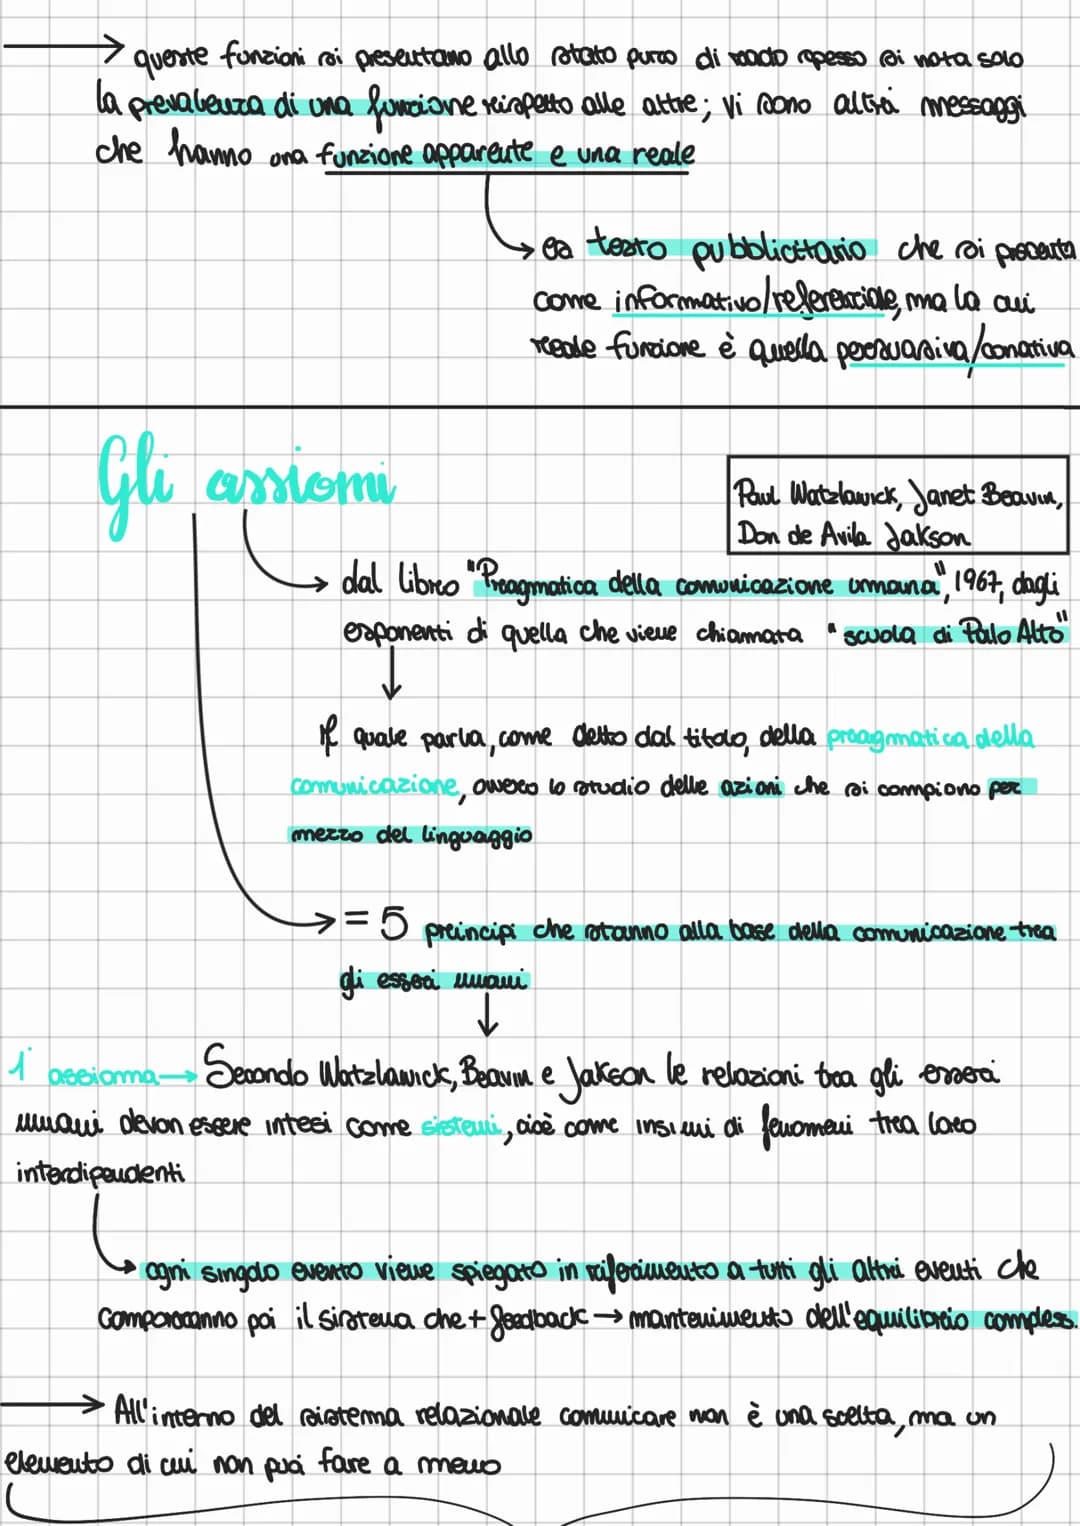 queste funzioni si presentano allo stato puro di rado spesso si nota solo
la prevalenza di una funzione rispetto alle altre; vi sono altri messaggi
che hanno una funzione apparente e una reale
es testo pubblicitario che si presenta
come informativo/referenziale, ma la cui
reale funzione è quella persuasiva/conativa
Gli assiomi
Paul Watzlawick, Janet Beavin,
Don de Avila Jakson
dal libro "Pragmatica della comunicazione umana", 1967, dagli
esponenti di quella che viene chiamata "scuola di Palo Alto"
Il quale parla, come detto dal titolo, della pragmatica della
comunicazione, ovvero lo studio delle azioni che si compiono per
mezzo del linguaggio
= 5 principi che stanno alla base della comunicazione tra
gli esseri umani
1° assioma → Secondo Watzlawick, Beavin e Jakson le relazioni tra gli esseri
umani devon essere intesi come sistemi, cioè come insiemi di fenomeni tra loro
interdipendenti
ogni singolo evento viene spiegato in riferimento a tutti gli altri eventi che
comporranno poi il sistema che + feedback → mantenimento dell'equilibrio compless.
All'interno del sistema relazionale comunicare non è una scelta, ma un
elemento di cui non puoi fare a meno